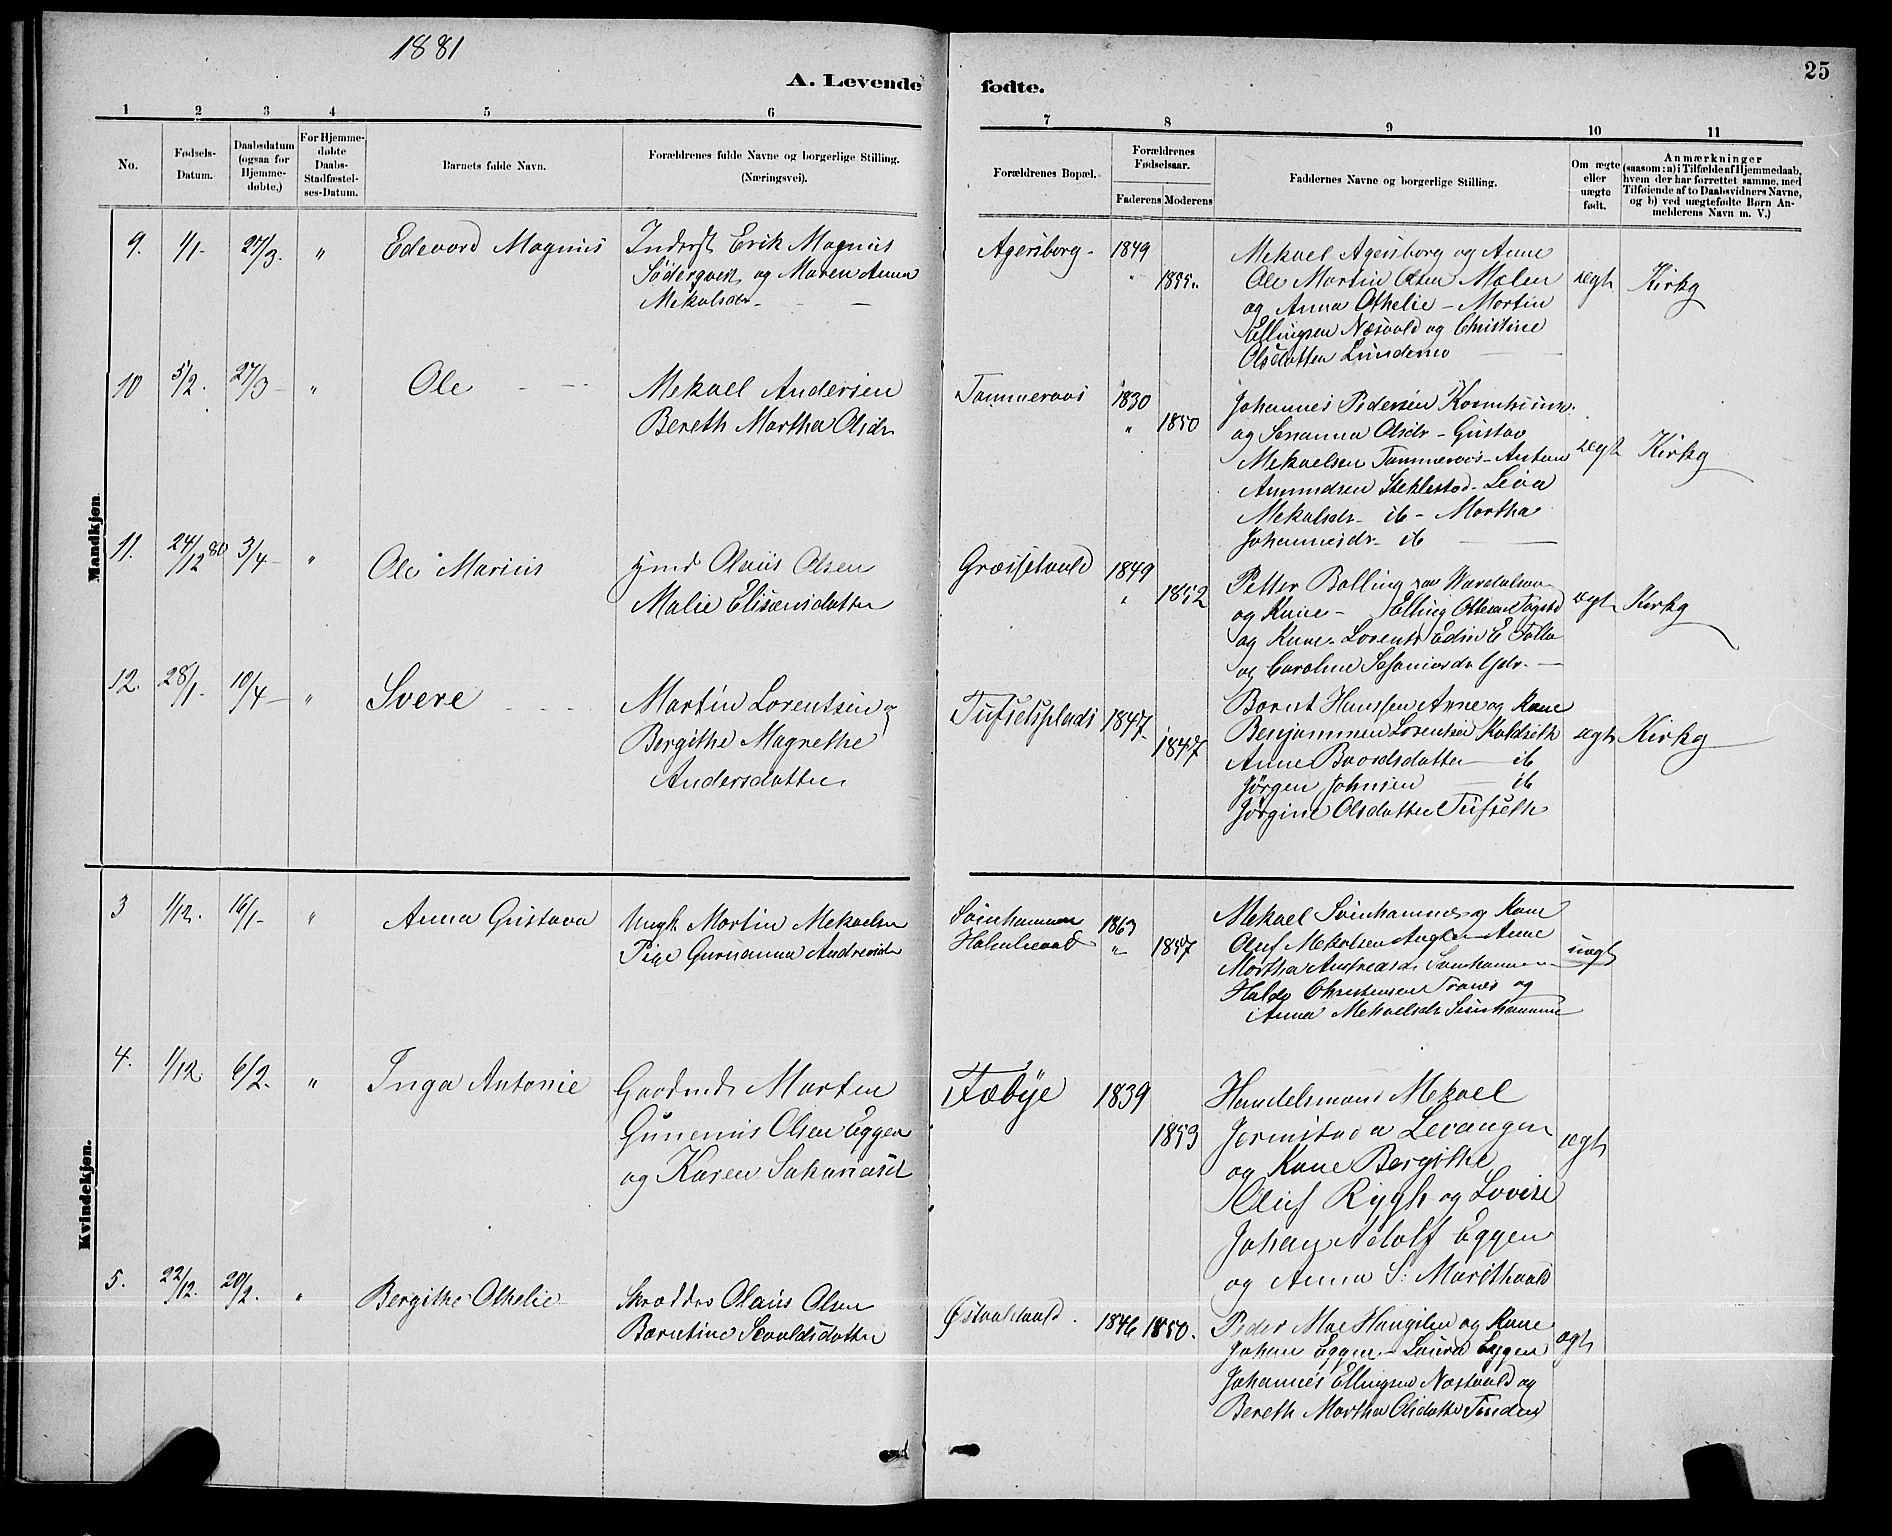 1881
25
A. Levende fødte.
1 2 3 4 5 6 7 8 9 10 11
No.
Fødsels-
Datum.
Daabsdatum
(ogsaa for
Hjemme-
døbte.)
For Hjemme-
døbte
Daabs-
Stadfæstel-
ses-Datum.
Barnets fulde Navn.
Forældrenes fulde Navne og borgerlige Stilling.
(Næringsvei).
Forældrenes Bopæl.
Forældrenes
Fødselsaar.
Faderens Moderens
Faddernes Navne og borgerlige Stilling.
Om ægte
eller
uægte
født.
Anmærkninger
(saasom: a) i Tilfælde af Hjemmedaab,
hvem der har forrettet samme, med
Tilføiende af to Daabsvidners Navne,
og b) ved uægtefødte Børn An-
melderens Navn m. V.)
Mandkjøn.
9. 1/1- 27/3. " Edevard Magnus
Inderst Erik Magnus
Södergvist og Maren Anna
Mekalsdr
Agersborg- 1849
" 1855.
Mekael Agersborg og Anne
Ole Martin Olsen Mølen
og Anna Othelie - Martin
Ellingsen Næsvald og Christine
Olsdatten Lundemo
ægt Kirkg
10 5/2. 27/3- " Ole
Mekael Andersen
Bereth Martha Olsdr
Tømmeraas 1830
" 1850
Johannes Pedersen
og Olsdr - Gustav
Mekaelsen Tømmeraas - Anton
Amundsen Stiklestad - Lena
Mekalsdr ib - Martha
Johannesdr ib
ægt Kirkg
11. 24/12 80 3/4- " Ole Marius
Olaus Olsen
Malie Elisæusdatter
1849
" 1852
Petter Balling paa Værdalsøra
og Kone - Elling Ottesen
og Kone - Lorents Edin E
og Caroline
ægt Kirkg
12. 28/1- 10/4- " Svere
Martin Lorentsen og
Bergithe Magrethe
Andersdatter
Tufsetsplads 1847
1847
Bernt Hanssen Arne og Kone
Benjaminen Lorentsen Koldseth
Anne Baardsdatter - ib
Jørgen Johnsen - ib
Jørgine Olsdatter Tufseth
ægt Kirkg
Kvindekjøn.
3 1/12. 16/1- " Anna Gustava
Ungk. Martin Mekaelsen
Pige Gurianna Andreasdr
Svinhammer
1863
" 1857
Mekael Svinhammer og Kone
Oluf Mekalsen
Martha Andreasdr Svinhammer
Haldo Christensen Tranes og
Anna Mekaelsdr Svinhammer
uægt
4. 1/12. 6/2. " Inga Antonie
Gaardmd. Morten
Gunerius Olsen Eggen
og Karen Johanesd
Fæbye 1839
1853
Handelsmand Mekael
Jermstad a Levanger
og Kone Bergithe
Oluf Rygh og Lovise
Johan Adolf Eggen
og Anna S. Marithvald
ægt
5. 22/12. 20/2. " Bergithe Othelie
Skrædder Olaus Olsen
Berntine Sevaldsdatter
1846 1850.
Peder Moe Haugslien og Kone
Johan Eggen - Laura Eggen
Johannes Ellingsen Næstvald og
Bereth Martha Olsdatter Tinden
ægt